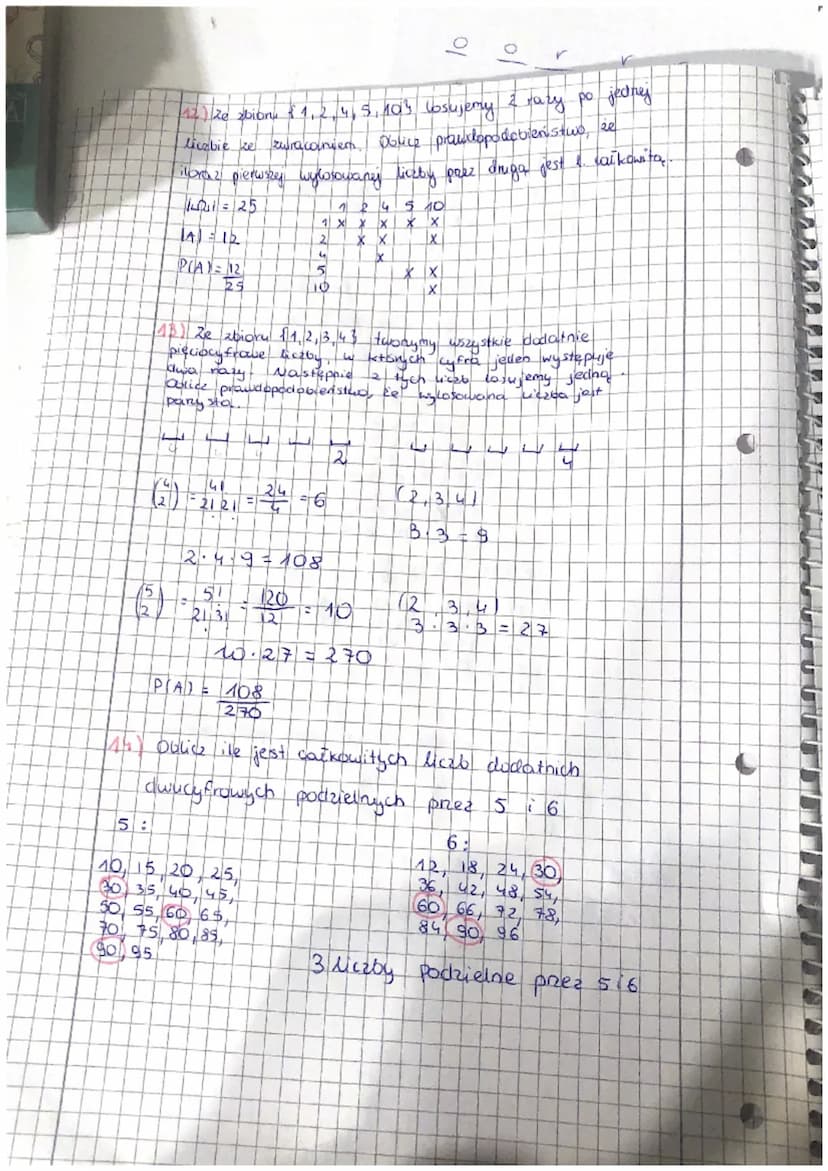 o o r r
12) Ze zbioru {1, 2, 4, 5, 10} losujemy 2 razy po jednej
liczbie ze zwracaniem. Oblicz prawdopodobieństwo, że
iloraz pierwszej wylosowanej liczby przez drugą jest l. całkowitą.
|Ω| = 25
1 2 4 5 10
1 x x x x x
|A| = 12
2 x x x
4 x
P(A) = 12/25
5 x x
10 x
13) Ze zbioru {1, 2, 3, 4} tworzymy wszystkie dodatnie
pięciocyfrowe liczby, w których cyfra jeden występuje
dwa razy. Następnie z tych liczb losujemy jedną.
Oblicz prawdopodobieństwo, że wylosowana liczba jest
parzysta.
2
4
(4 2) = 4!/2!2! = 24/4 = 6
(2, 3, 4)
3 · 3 = 9
2 · 4 · 9 = 108
(5 2) = 5!/2!3! = 120/12 = 10
(2, 3, 4)
3 · 3 · 3 = 27
10 · 27 = 270
P(A) = 108/270
14) Oblicz ile jest całkowitych liczb dodatnich
dwucyfrowych podzielnych przez 5 i 6
5:
10, 15, 20, 25,
30, 35, 40, 45,
50, 55, 60, 65,
70, 75, 80, 85,
90, 95
6:
12, 18, 24, 30,
36, 42, 48, 54,
60, 66, 72, 78,
84, 90, 96
3 liczby podzielne przez 5 i 6